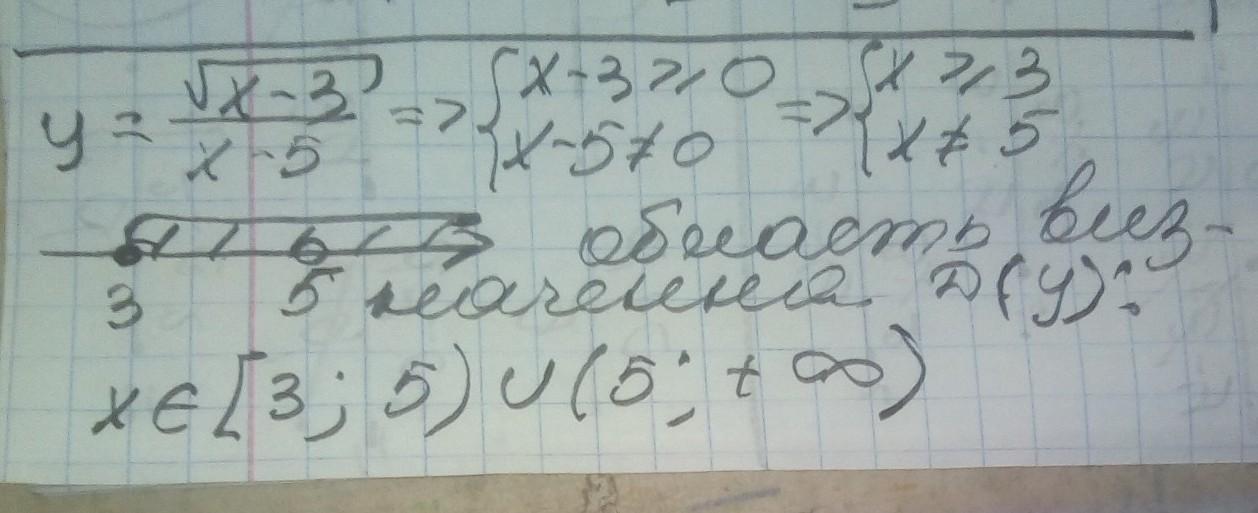 y = √(x-3) / (x-5) => { x-3 ⩾ 0 ; x-5 ≠ 0 => { x ⩾ 3 ; x ≠ 5
3 5 область виз-
начення D(y):
x ∈ [3; 5) ∪ (5; +∞)